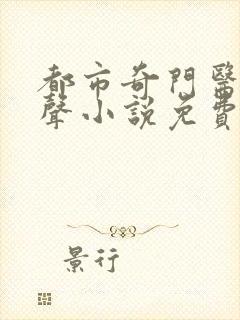 都市奇門醫
聲小說免費
景行